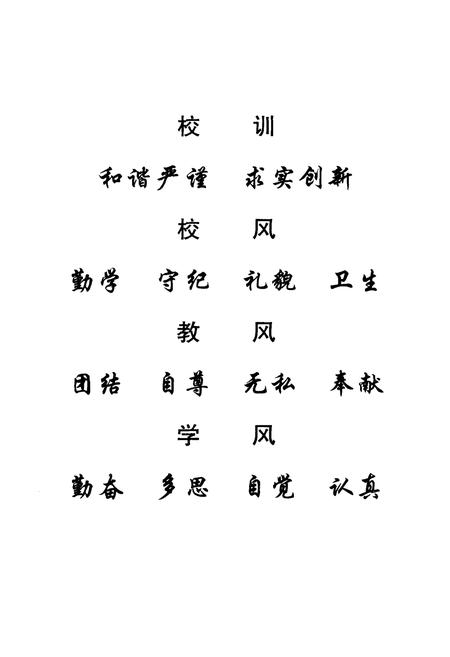 校 训
和谐严谨 求实创新
校 风
勤学 守纪 礼貌 卫生
教 风
团结 自尊 无私 奉献
学 风
勤奋 多思 自觉 认真